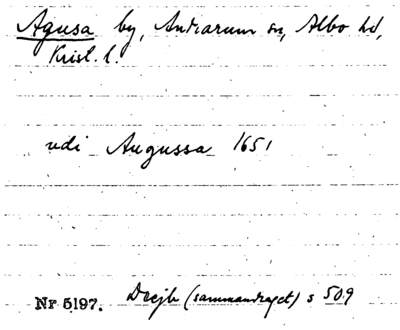 Agusa by, Andrarum sn, Albo hd,
Krist. l.
udi Augussa 1651
Nr 5197. Drejb (sammandraget) s 509